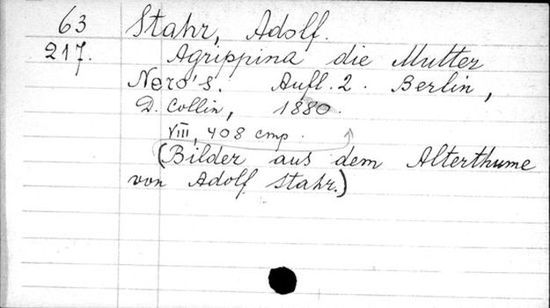 63 Stahr, Adolf.
217. Agrippina die Mutter
Nero's. Aufl. 2. Berlin,
D. Collin, 1880.
VIII, 408 стр.
(Bilder aus dem Alterthume
von Adolf Stahr.)